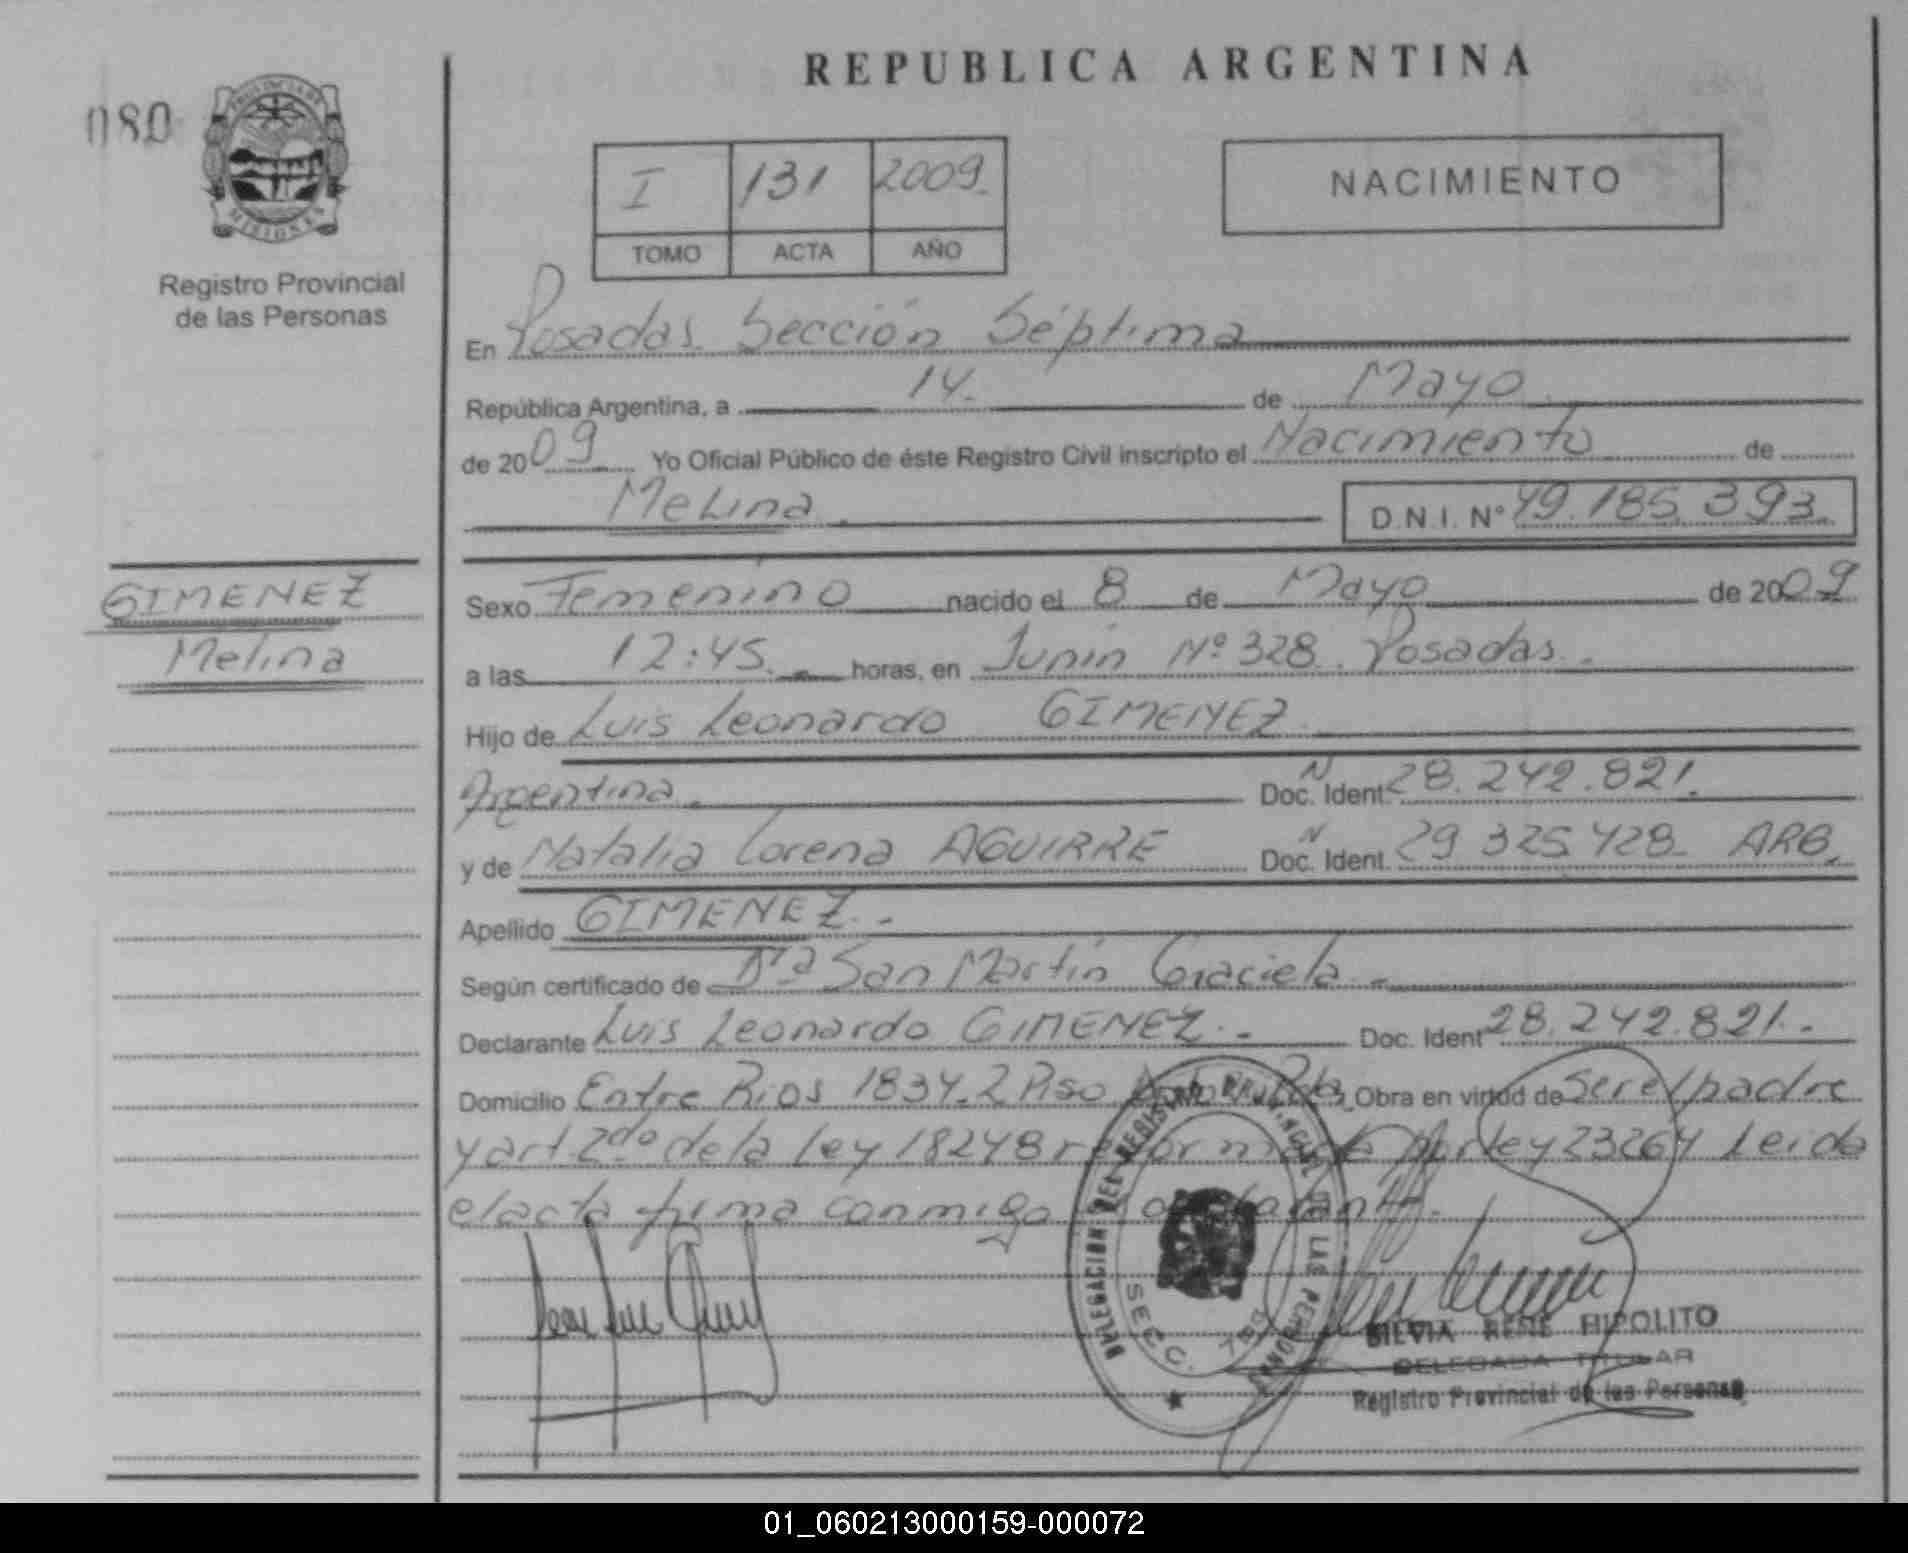 REPUBLICA ARGENTINA
080
PROVINCIA DE
MISIONES
Registro Provincial
de las Personas
I 131 2009.
TOMO ACTA AÑO
NACIMIENTO
En Posadas. Sección Séptima
República Argentina, a 14. de Mayo
de 2009 Yo Oficial Público de éste Registro Civil inscripto el Nacimiento de
Melina D.N.I. N° 49.185.393.
GIMENEZ
Melina
Sexo Femenino nacido el 8 de Mayo de 2009
a las 12:45. horas, en Junín Nº 328. Posadas.
Hijo de Luis Leonardo GIMENEZ
Argentina. Doc. Ident. N 28.242.821.
y de Natalia Lorena AGUIRRE Doc. Ident. N 29 325 428 ARG.
Apellido GIMENEZ.-
Según certificado de Dra San Martín Graciela.-
Declarante Luis Leonardo GIMENEZ.- Doc. Ident 28.242.821.-
Domicilio Entre Rios 1834-2 Piso Pdas. Obra en virtud de ser el padre
y art 2do de la Ley 18248 reformada por ley 23264 Leida
el acta firma conmigo
DELEGACION DEL REGISTRO PROVINCIAL DE LAS PERSONAS
SECC. 7ma
SILVIA RENE HIPOLITO
DELEGADA TITULAR
Registro Provincial de las Personas
01_060213000159-000072